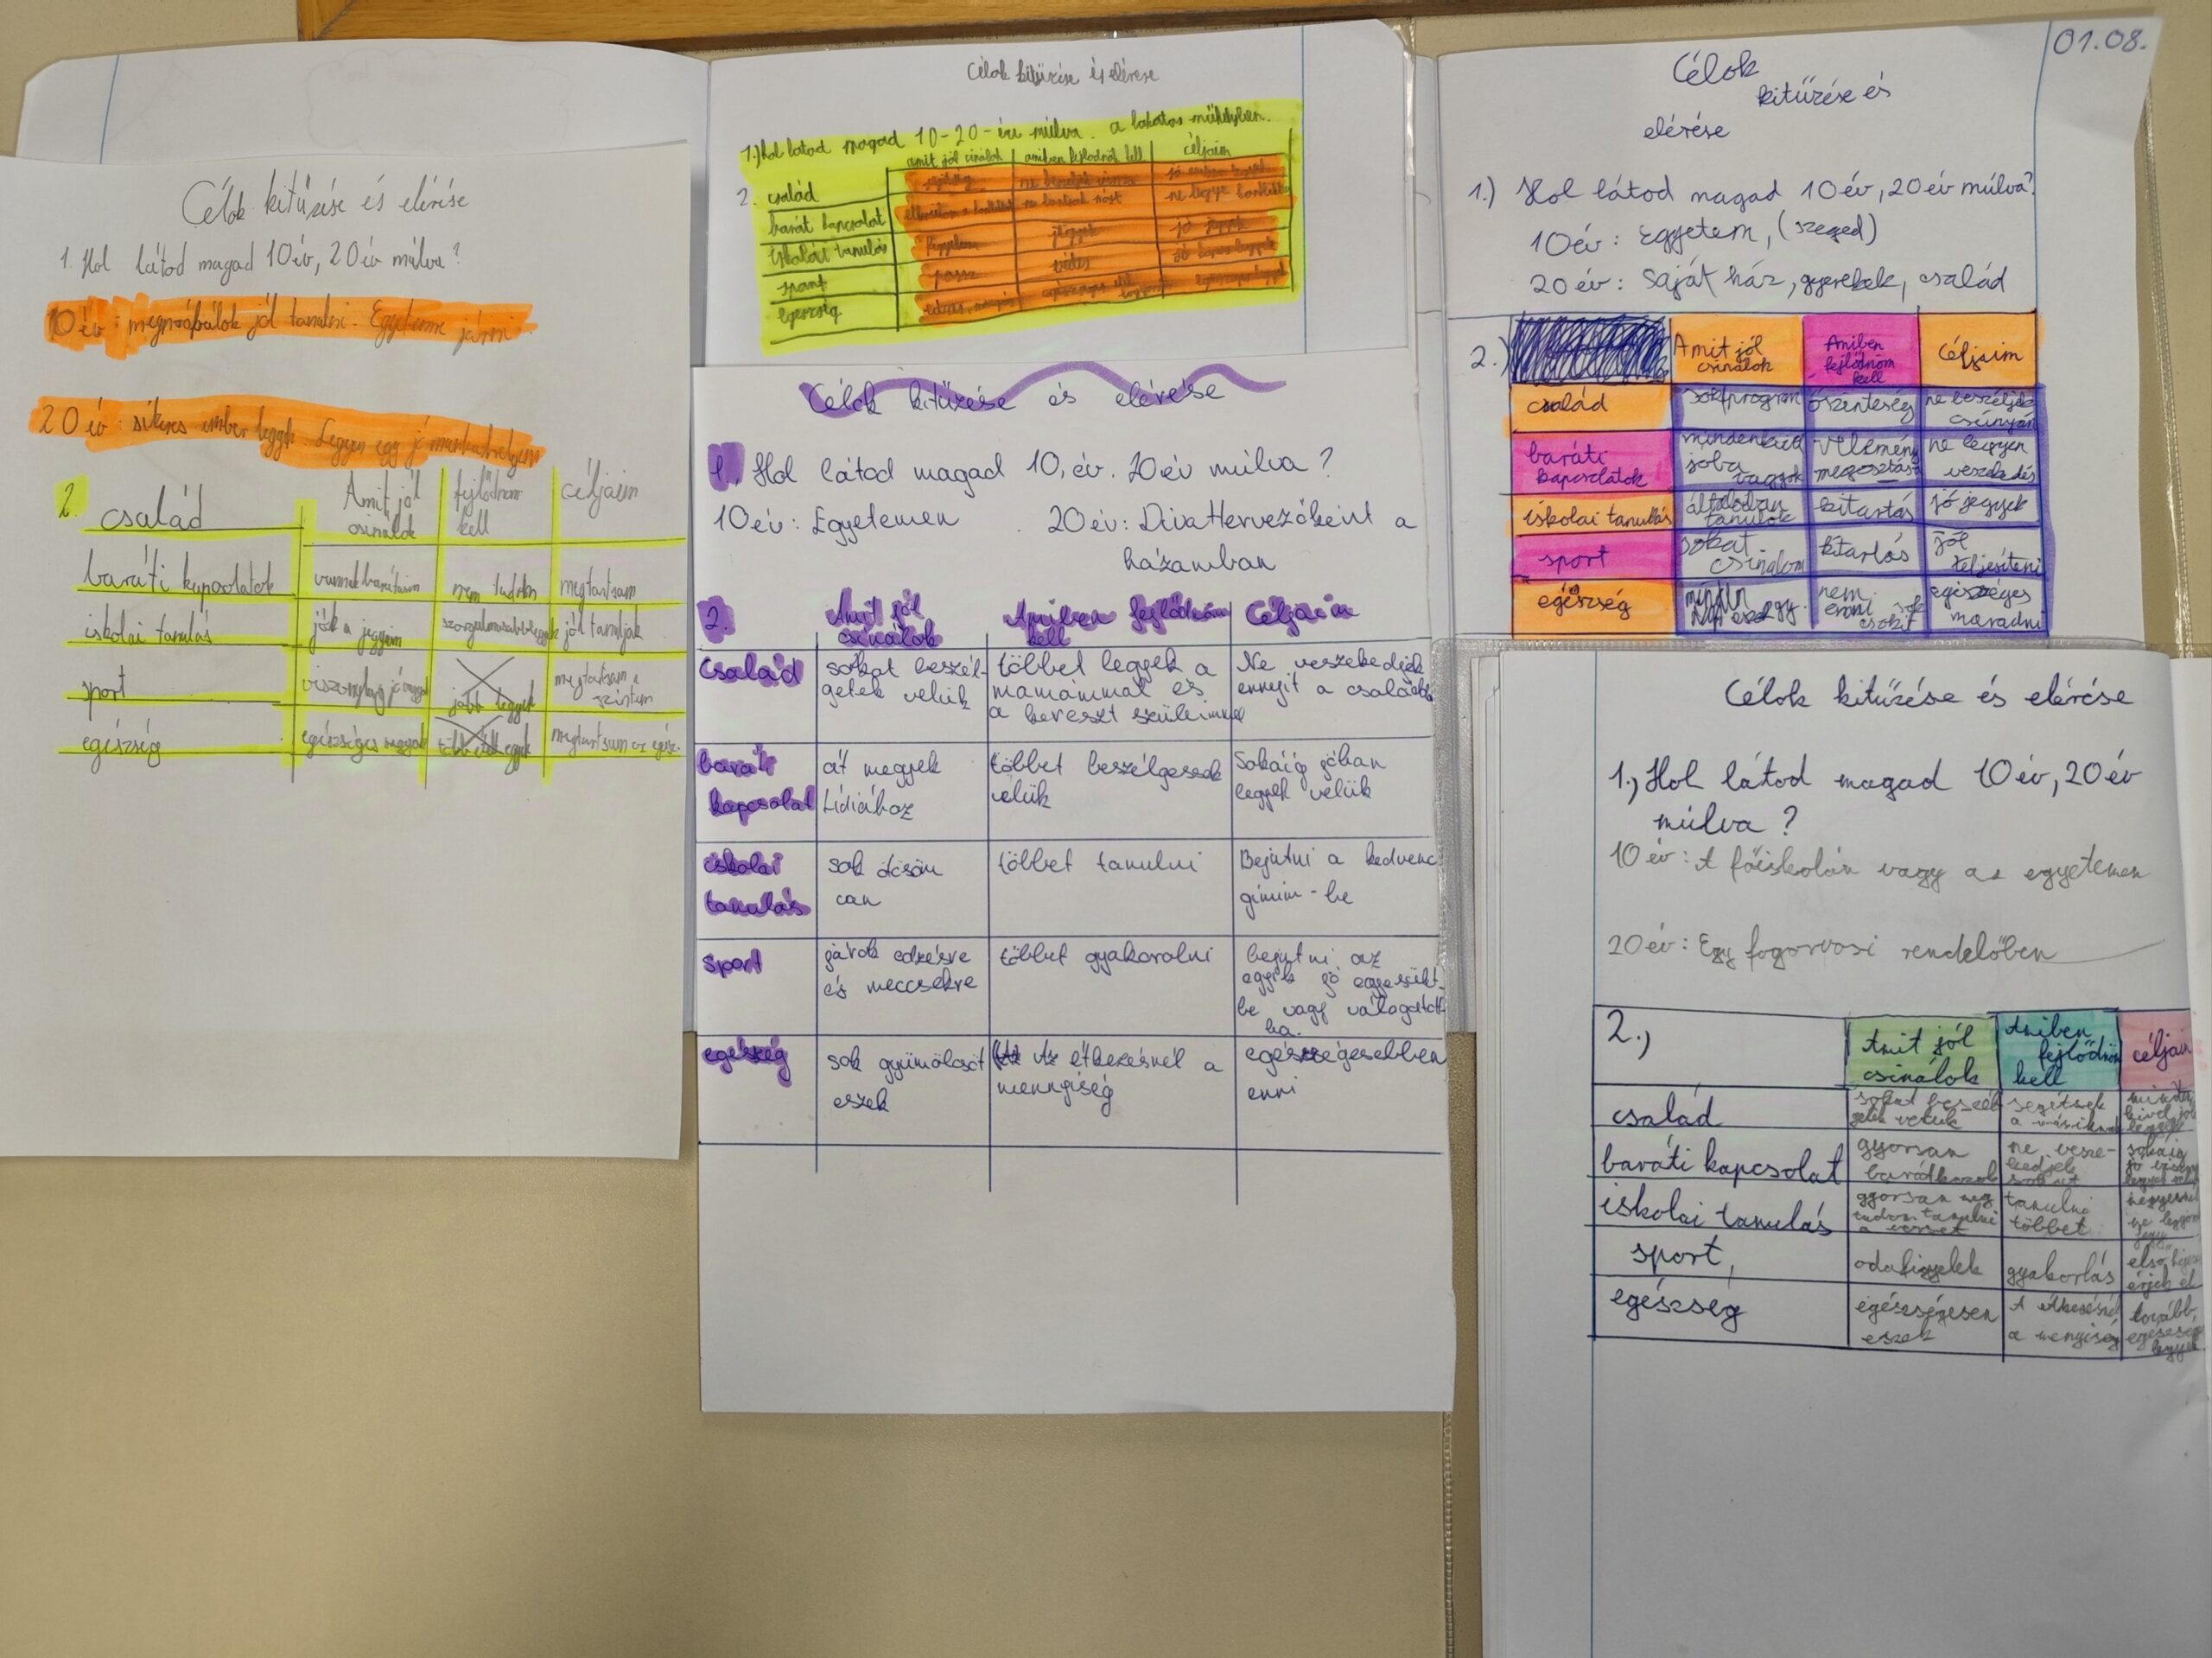 Célok kitűzése és elérése
1. Hol látod magad 10 év, 20 év múlva?
10 év: megpróbálok jól tanulni. Egyetemre járni.
20 év: sikeres ember legyek. Legyen egy jó munkahelyem
2. család Amit jól csinálok fejlődnöm kell céljaim
baráti kapcsolatok vannak barátaim nem tudom megtartsam
iskolai tanulás jók a jegyeim szorgalmasabb legyek jól tanuljak
sport jobb legyek megtartsam a szintem
egészség egészséges vagyok megtartsam az egész.
Célok kitűzése és elérése
1.) Hol látod magad 10-20-év múlva. a lakatos műhelyben.
amit jól csinálok amiben fejlodnöt kell céljaim
2. család
barát kapcsolat
iskolai tanulás figyelem jegyek jó jegyek
sport passz védés
egészség
Célok kitűzése és elérése
1. Hol látod magad 10, év. 20 év múlva?
10 év: Egyetemen 20 év: Divattervezőként a
házamban
2. Amit jól csinálok Amiben fejlődnöm kell Céljaim
Család sokat beszél- többet legyek a Ne veszekedjek
getek velük mamámmal és ennyit a
a kereszt szüleimmel
baráti át megyek többet beszélgessek Sokáig jóban
kapcsolat Lídiához velük legyek velük
iskolai sok ötösöm többet tanulni Bejutni a kedvenc
tanulás van gimim-be
sport járok edzésre többet gyakorolni bejutni az
és meccsekre egyik jó
be vagy válogatott
ba.
egészség sok gyümölcsöt Az étkezésnél a egészségesebben
eszek mennyiség enni
01.08.
Célok
kitűzése és
elérése
1.) Hol látod magad 10 év, 20 év múlva?
10 év: Egyetem, (szeged)
20 év: Saját ház, gyerekek, család
2.) Amit jól csinálok Amiben fejlődnöm kell Céljaim
család sok program őszinteség ne beszéljek
csúnyán
baráti mindenkivel vélemény ne legyen
kapcsolatok jóba vagyok megosztás veszekedés
iskolai tanulás általában tanulok kitartás jó jegyek
sport sokat csinálom kitartás jól teljesíteni
egészség nem enni sok csokit egészséges maradni
Célok kitűzése és elérése
1., Hol látod magad 10 év, 20 év
múlva?
10 év: A főiskolán vagy az egyetemen
20 év: Egy fogorvosi rendelőben
2., Amit jól csinálok Amiben fejlődnöm kell céljaim
család sokat beszél getek velük segítsek
baráti kapcsolat gyorsan barátkozok ne vesze- kedjek sokáig
iskolai tanulás gyorsan meg tudom tanulni a verset tanulni többet
sport, odafigyelek gyakorlás
egészség egészségesen eszek